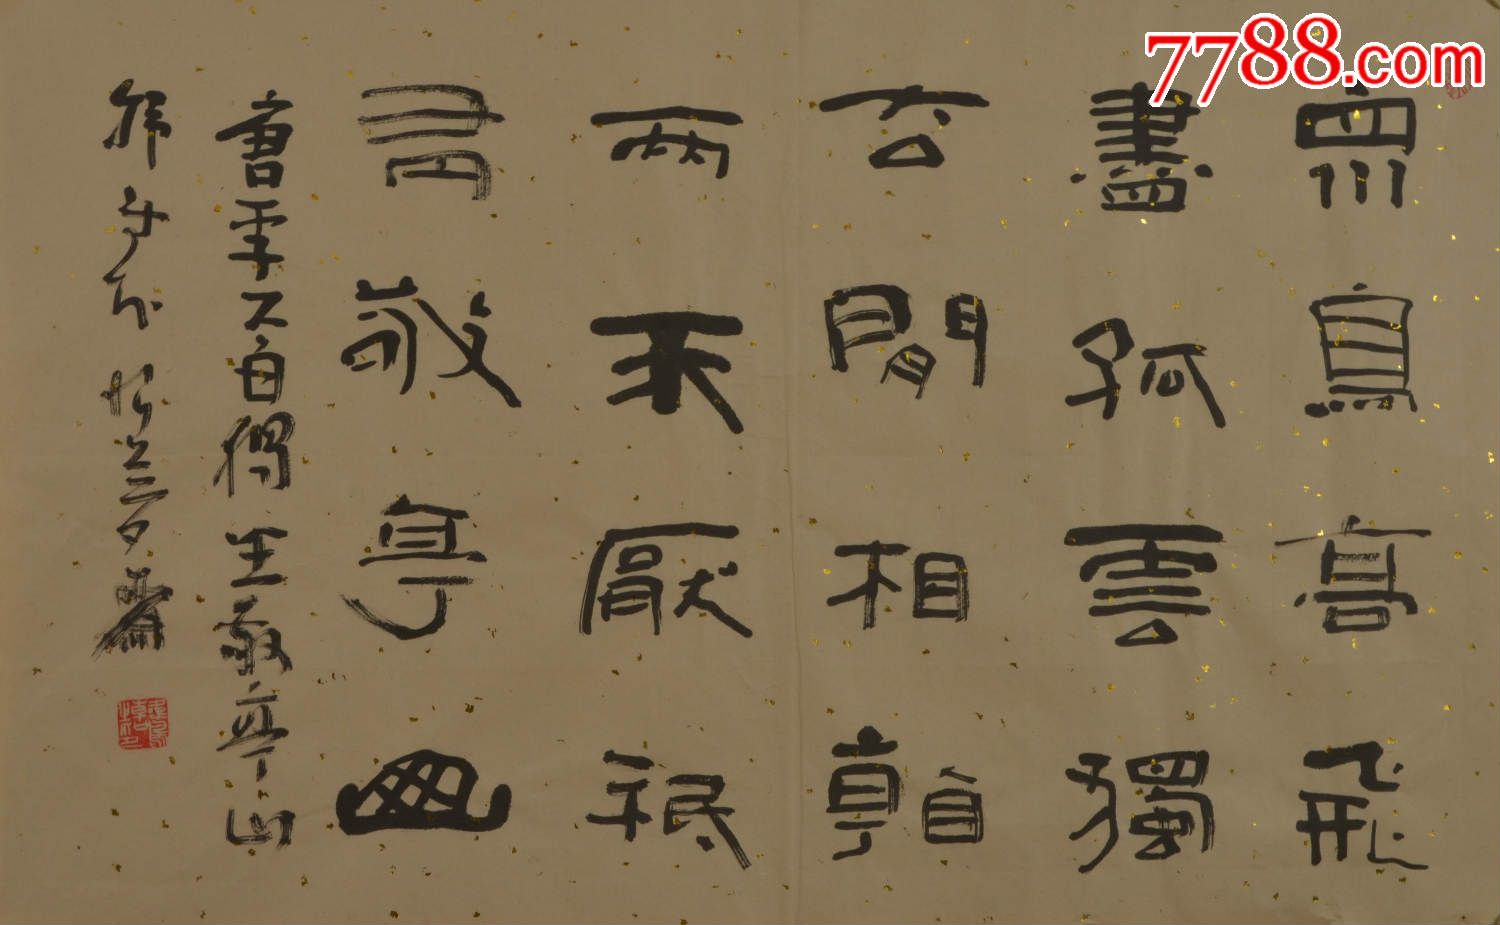 7788.com
眾鳥高飛
盡孤雲獨
去閒相看
兩不厭祗
有敬亭山
唐李太白獨坐敬亭山